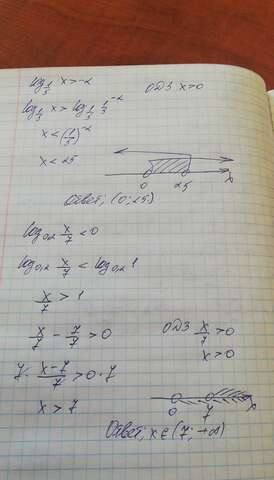 log₁/₅ x > -2 ОДЗ x>0
log₁/₅ x > log₁/₅ 1/5⁻²
x < (1/5)⁻²
x < 25
0 25 x
Ответ: (0; 25)
log₀,₂ x/7 < 0
log₀,₂ x/7 < log₀,₂ 1
x/7 > 1
x/7 - 7/7 > 0 ОДЗ x/7 > 0
x > 0
7· (x-7)/7 > 0·7
x > 7
0 7 x
Ответ: x∈(7; +∞)